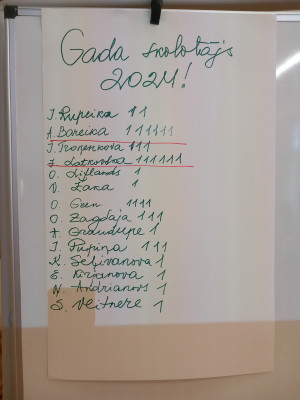 Gada skolotājs
2024!
I. Rupeika 11
A. Bareika 111111
I. Troņenkova 111
Ž. Latkovska 111111
O. Liflands 1
V. Zaka 1
O. Gzen 1111
O. Zagdaja 111
I. Pupiņa 111
K. Seļivanova 1
E. Kirjanova 1
N. Andrianovs 1
S. Veitnere 1